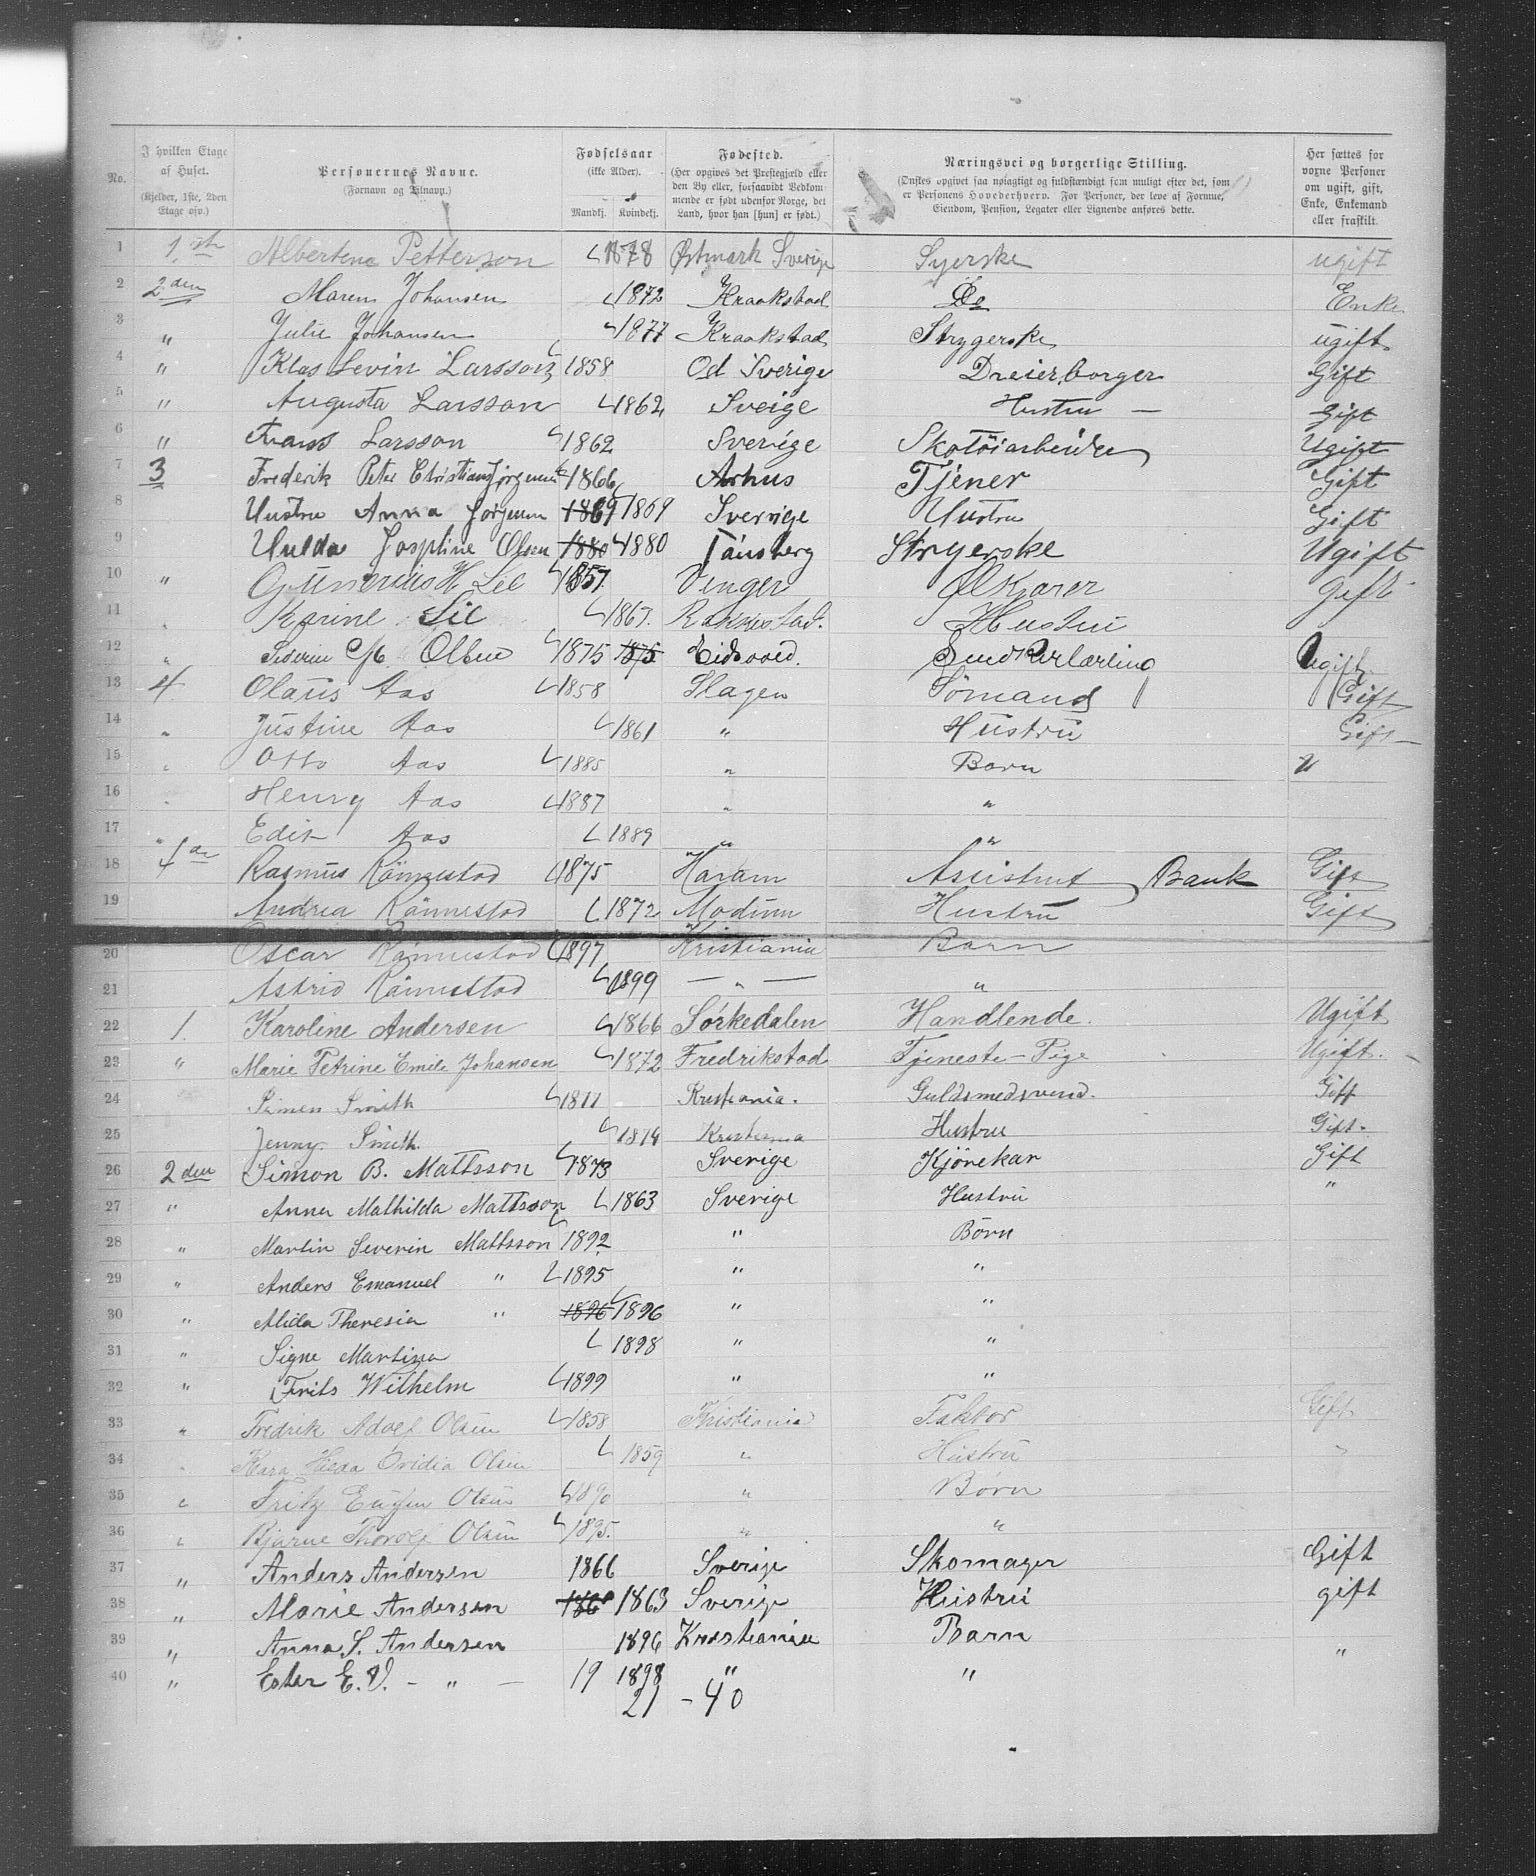 No. I hvilken Etage af Huset. (Kjelder, 1ste, 2den Etage osv.) Personernes Navne. (Fornavn og Tilnavn.) Fødselsaar (ikke Alder). Mandkj. Kvindekj. Fødested. (Her opgives det Prestegjæld eller den By eller, forsaavidt Vedkommende er født udenfor Norge, det Land, hvor han [hun] er født.) Næringsvei og borgerlige Stilling. (Ønskes opgivet saa nøiagtigt og fuldstændigt som muligt efter det, som er Personens Hovederhverv. For Personer, der leve af Formue, Eiendom, Pension, Legater eller Lignende anføres dette. Her sættes for vorne Personer om ugift, gift, Enke, Enkemand eller fraskilt.
1 1.ste Albertene Petterson 1878 Østmark Sverige Syerske ugift
2 2den Maren Johansen 1872 Kraakstad Do Enke
3 " Julie Johansen 1877 Kraakstad Strygerske ugift
4 " Klas Levin Larsson 1858 Od Sverige Dreier, borger Gift
5 " Augusta Larsson 1862 Sveige Hustru — gift
6 " Frans Larsson 1862 Sverige Skotöiarbeider Ugift
7 3 Frederik Peter Christian Jørgensen 1866 Arhus Tjener Gift
8 Hustru Anna Jørgensen 1869 1869 Sverige Hustru Gift
9 Hulda Josphine Olsen 1880 1880 Tänsberg Strygerske Ugift
10 " Gunerius H Lie 1857 Vinger Ølkjører gift
11 " Karine Lie 1867. Rakkestad. Hustru
12 " Olsen 1875 1875 Eidsvold. Snedkerlærling Ugift
13 4 Olaus Aas 1858 Slagen Sömand Gift
14 " Justine Aas 1861 " Hustru Gift
15 " Otto Aas 1885 " Barn u
16 " Henry Aas 1887 " "
17 " Edit Aas 1889 " "
18 4de Rasmus Rönnestad 1875 Haram Assistent Bank Gift
19 Andrea Rönnestad 1872 Modum Hustru Gift
20 Oscar Rönnestad 1897 Kristiania Barn
21 Astrid Rönnestad 1899 — " — "
22 1. Karoline Andersen 1866 Sörkedalen Handlende. Ugift
23 " Marie Petrine Emile Johansen 1872 Fredrikstad Tjeneste-Pige Ugift.
24 Simen Smith 1877 Kristiania. Guldsmedsvend. Gift
25 Jenny Smith. 1874 Kristiania Hustru Gift.
26 2den Simon B. Mattsson 1873 Sverige Kjörekar Gift
27 " Anna Mathilda Mattsson 1863 Sverige Hustru "
28 " Martin Severin Mattsson 1892 " Börn
29 " Anders Emanuel " 1895 " "
30 " Alida Theresia " 1896 1896 " "
31 " Signe Martina 1898 " "
32 " Frits Wilhelm 1899 " "
33 " Fredrik Adolf Olsen 1858 Kristiania Faktor Gift
34 " Hilda Ovidia Olsen 1859 " Hustru "
35 " Fritz Eugen Olsen 1890 " Börn
36 " Bjarne Thorolf Olsen 1895. " "
37 " Anders Andersen 1866 Sverige Skomager Gift
38 " Marie Andersen 1863 Sverige Hustru gift
39 " Anna S. Andersen 1896 Kristiania Barn "
40 " Ester E. V. - " — 19 1898 " "
21 - 40